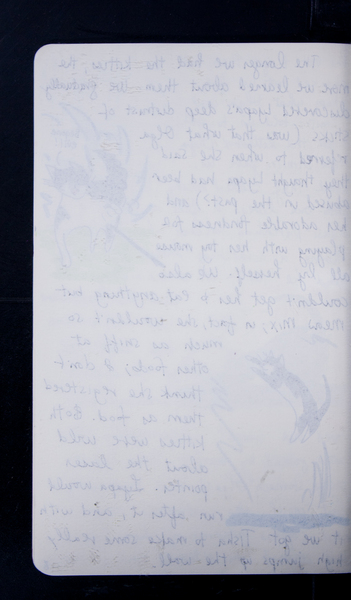 The longer we had the kitties the
more we learned about them — we gradually
discovered Lyapa's deep distrust of
sticks (was that what Olga
referred to when she said
they thought Lyapa had been
abused in the past?) and
her adorable fondness for
playing with her toy mouse
all by herself. We also
couldn't get her to eat anything but
Meow Mix; in fact, she wouldn't so
much as sniff at
other foods; I don't
think she registered
them as food. Both
kitties were wild
about the laser
pointer. Lyapa would
run after it, and with
it we got Tisha to make some really
high jumps up the wall.